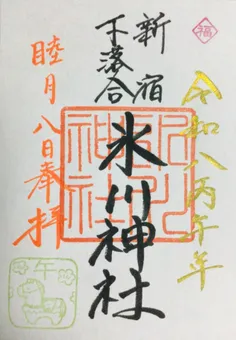 福
令和八丙午年
新宿
下落合
氷川神社
氷川神社
睦月八日奉拝
午